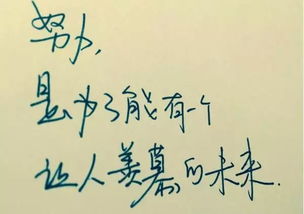 努力,
是为了能有一个
让人羡慕的未来.